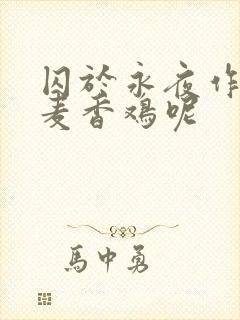 囚於永夜作
麦香鸡呢
馬中勇